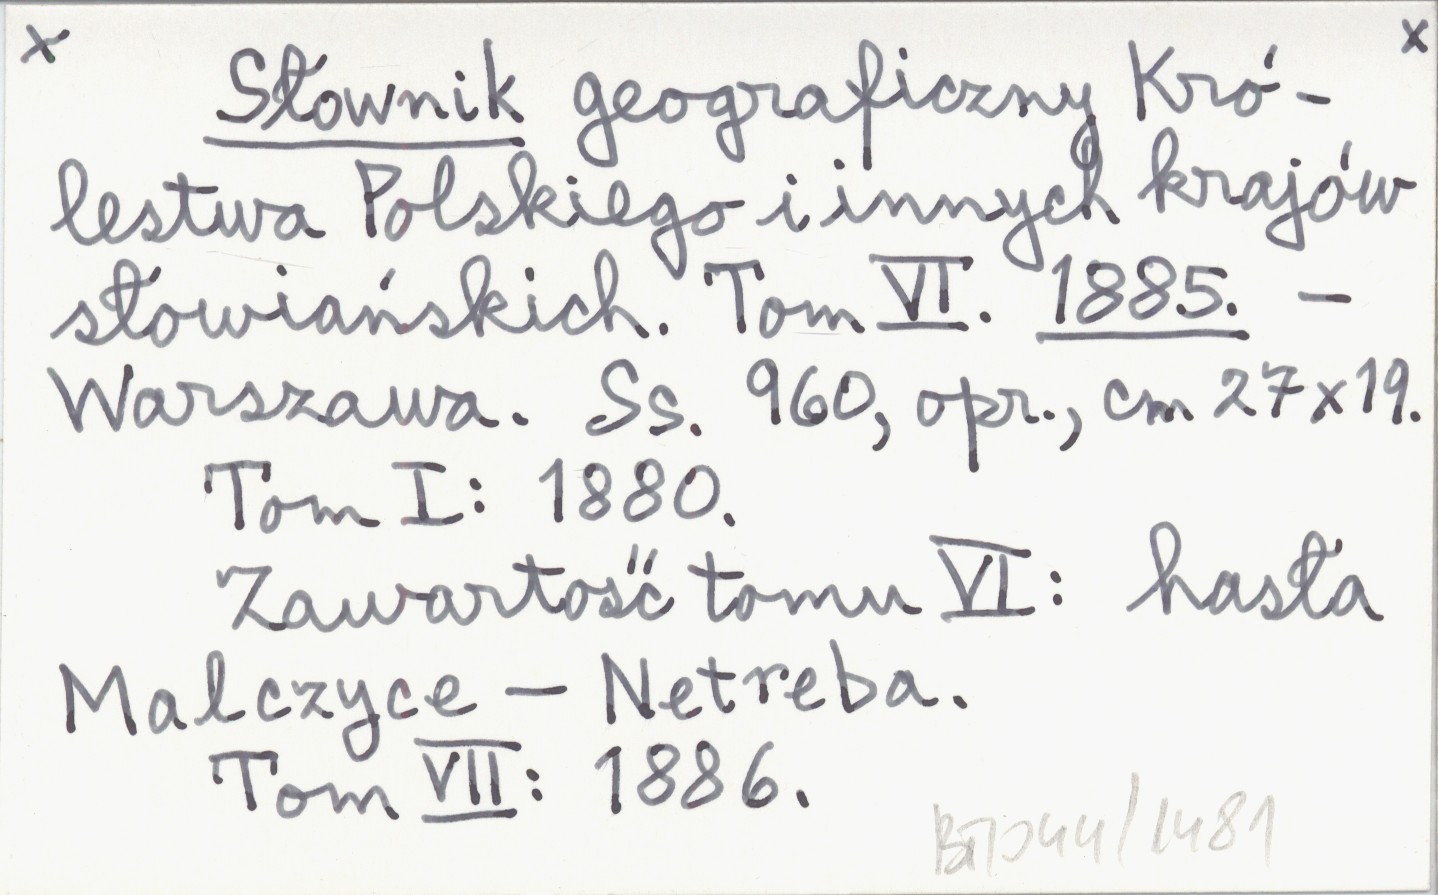 x x
Słownik geograficzny Kró-
lestwa Polskiego i innych krajów
słowiańskich. Tom VI. 1885. –
Warszawa. Ss. 960, opr., cm 27x19.
Tom I: 1880.
Zawartość tomu VI: hasła
Malczyce – Netreba.
Tom VII: 1886.